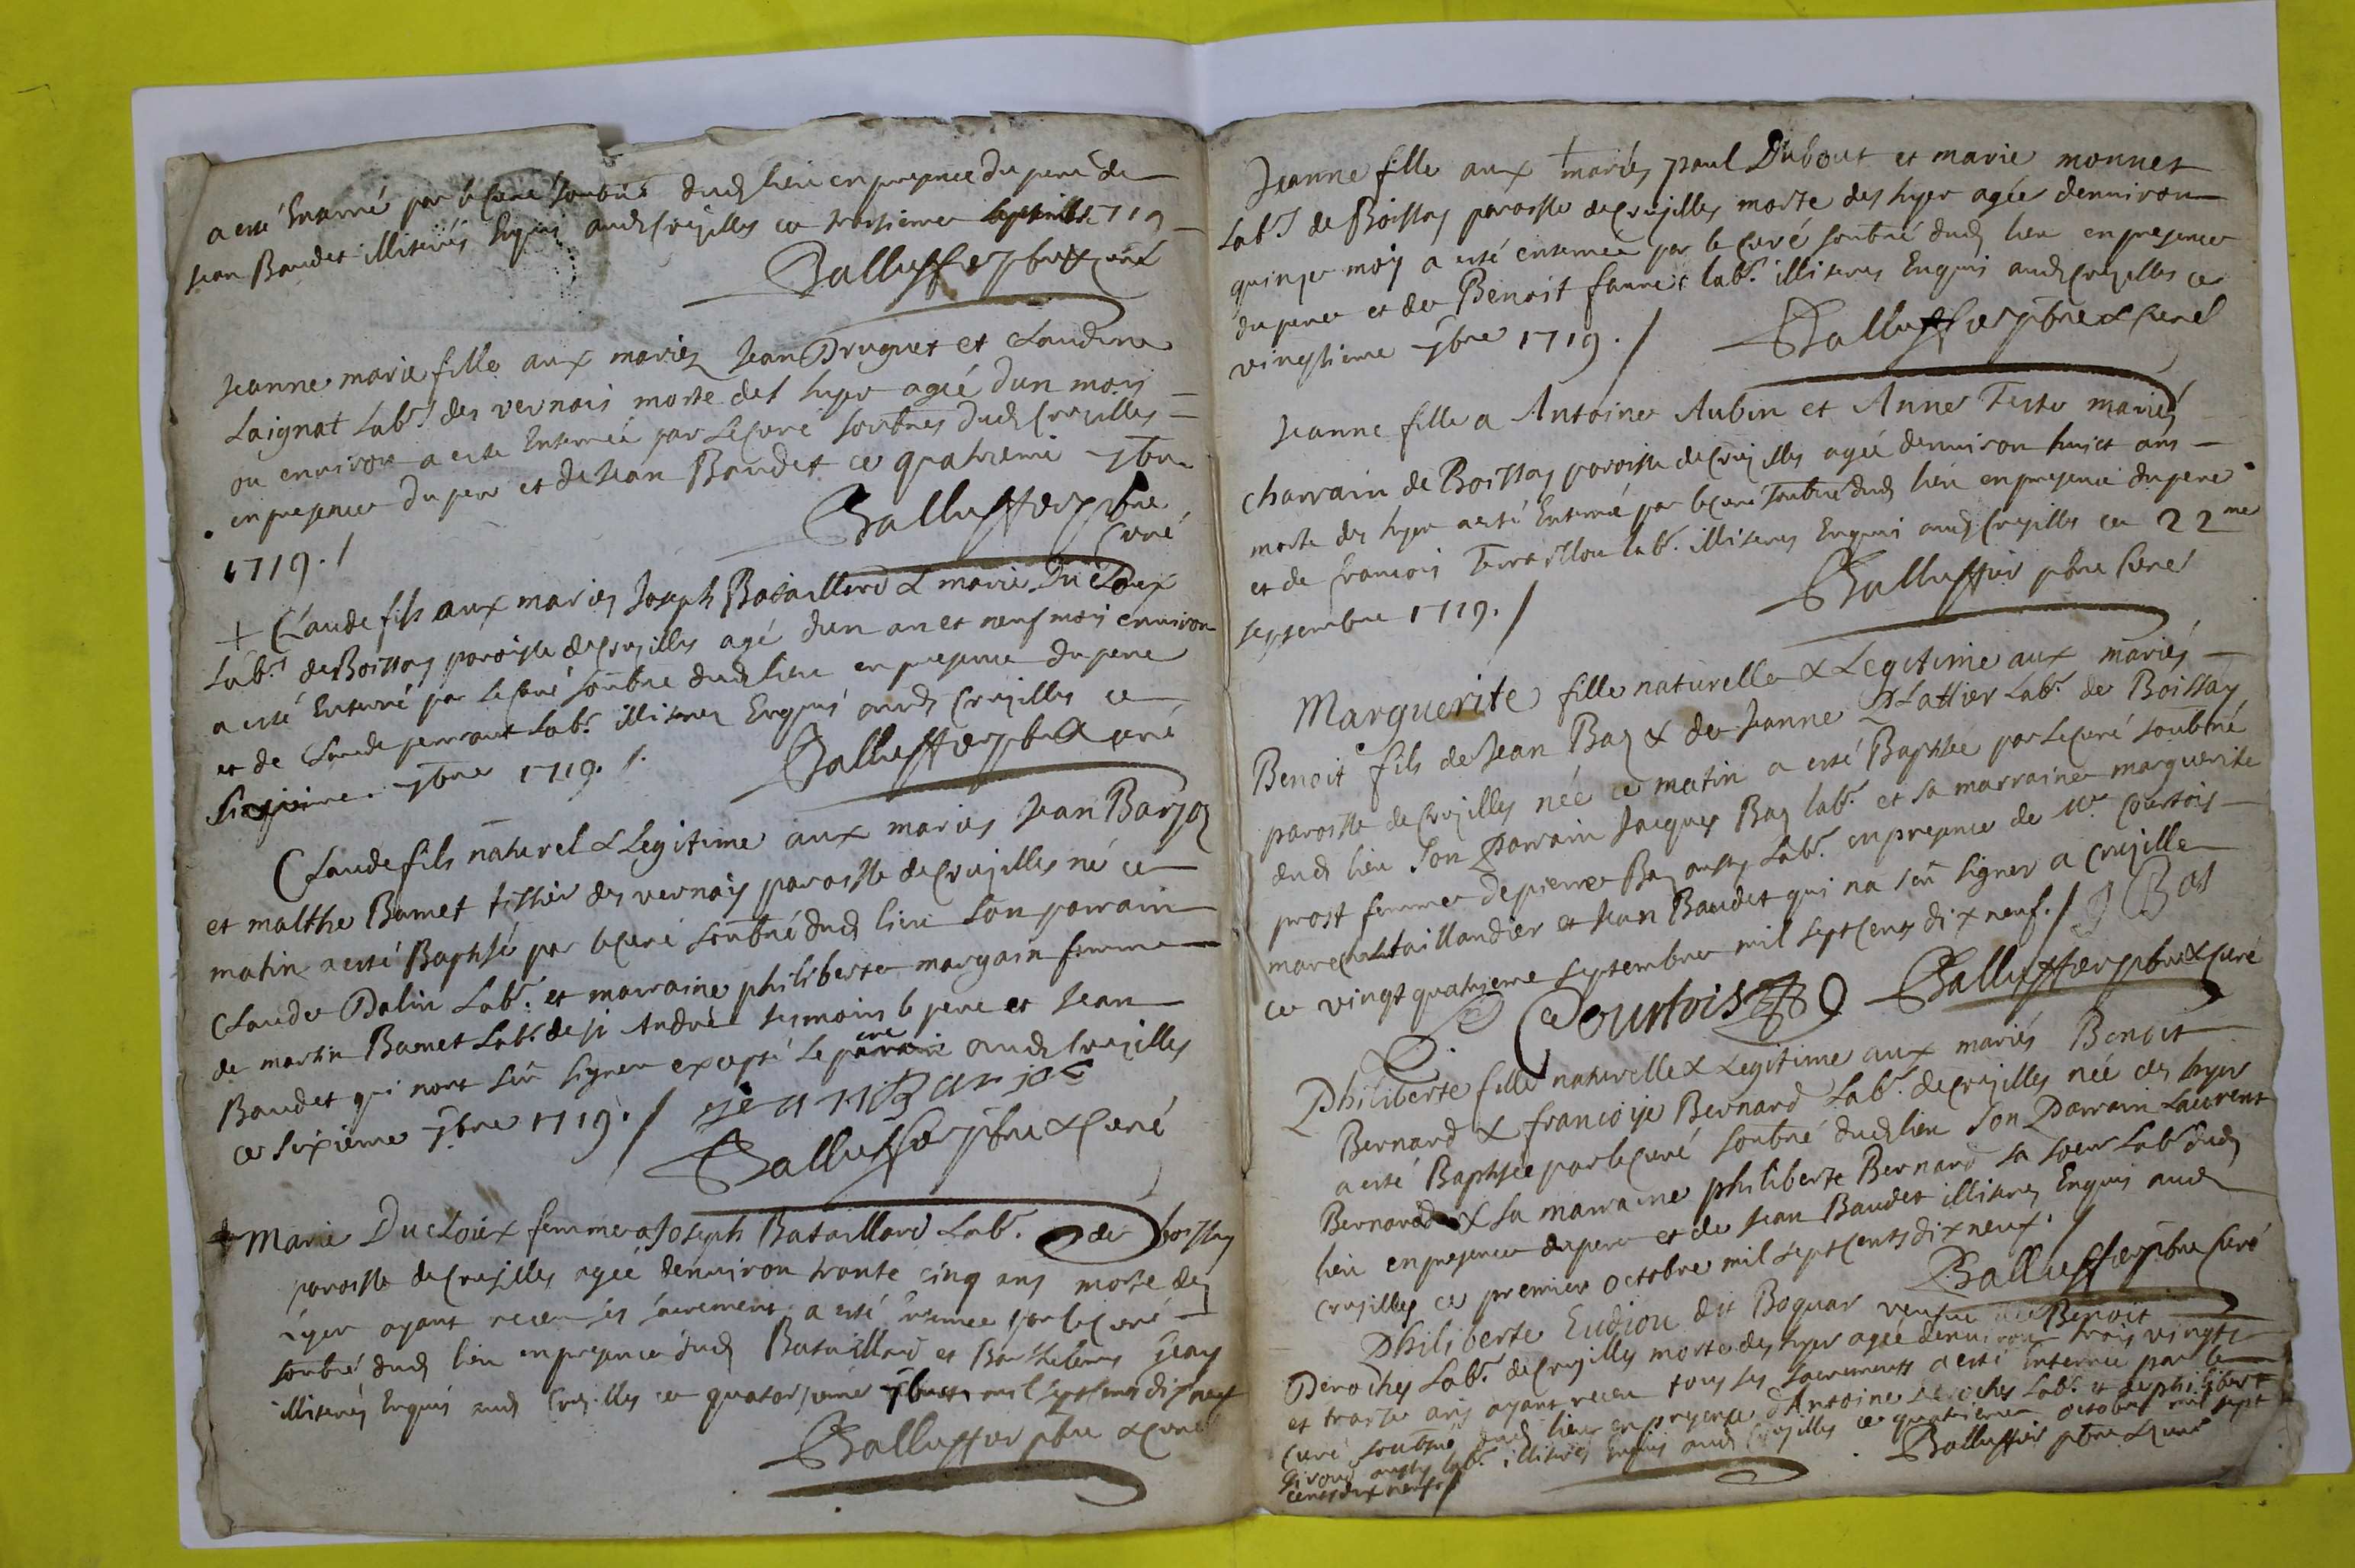 a esté Enterré par le Curé soubné dud lieu en presence du pere de
Jean Baudet illiterés Enquis aud Crusilles ce troisieme septembre 1719
Balluffier pbre & Curé
Jeanne marie fille aux mariez Jean Druguet et Claudine
Laignat Labrs des vernais morte des hyer agée dun mois
ou environ a esté Enterrée par Le Curé soubnes dud Crusilles
en presence du pere et de Jean Baudet ce quatrieme 7bre
1719./
Balluffier pbre
Curé
+ Claude fils aux mariez Joseph Bataillard & marie Du Cloux
Labrs de Boissay paroisse de Crusilles agé dun an et neuf mois environ
a esté Enterré par Le Curé soubne dud lieu en presence du pere
et de Claude perraut Labr. illiterez Enquis aud Crusilles ce
Sixieme 7bre 1719./.
Balluffier pbre & curé
Claude fils naturel & Legitime aux mariés Jean Barjot
et malthe Bamet tissier des vernays paroisse de Crusilles né ce
matin a esté Baptisé par le Curé soubné dud lieu son parrain
Claude Dalin Labr. et marraine philiberte margain femme
de martin Bamet Labr. de st André tesmoins le pere et Jean
Baudet qui nont sceu signer excepté le pere aud Crusilles
ce sixieme 7bre 1719./
jean Barjot
Balluffier pbre & Curé
+ Marie Ducloux femme a Joseph Bataillard Labr. de boissay
paroisse de Crusilles agée denviron trante cinq ans morte des
hyer ayant receu ses sacrements a esté enterrée par le Curé
soubné dud lieu en presence dud Bataillard et Barthelemy
illiterés Enquis aud Crusilles ce quatorzieme 7bre mil sept cents dix neuf
Balluffier pbre & Curé
Jeanne fille aux + mariés paul Dubout et marie monnet
Labrs de Boissay paroisse de Crusilles morte des hyer agée denviron
quinze mois a esté enterrée par le Curé soubné dud lieu en presence
du pere et de Benoit labr. illiteres Enquis aud Crusilles ce
vingtieme 7bre 1719./
Balluffier pbre & Curé
Jeanne fille a Antoine Aubin et Anne Teste mariés
charrain de Boissay paroisse de Crusilles agée denviron huict ans
morte des hyer a esté Enterrée par le Curé soubné dud lieu en presence du pere
et de francois Terraillon labr. illiteres Enquis aud Crusilles ce 22me
septembre 1719./
Balluffier pbre Curé
Marguerite fille naturelle & Legitime aux mariés
Benoit fils de Jean Bas & de Jeanne Plattier Labr. de Boissay
paroisse de Crusilles née ce matin a esté Baptisée par le Curé soubné
dud lieu son parrain Jacques Bas labr. et sa marraine marguerite
prost femme de pierre Bas aussy Labr. en presence de Mre Courtois
marechal taillandier et Jean Baudet qui na sceu signer a Crusille
ce vingt quatrieme septembre mil sept cents dix neuf./
J Bas
Courtois
Balluffier pbre & Curé
Philiberte fille naturelle & Legitime aux mariés Benoit
Bernard & francoise Bernard Labr. de Crusilles née des hyer
a esté Baptisée par le Curé soubné dud lieu son parrain Laurent
Bernard & sa marraine philiberte Bernard sa soeur Labr dud
lieu en presence du pere et de Jean Baudet illiteres Enquis aud
Crusilles ce premier octobre mil sept cents dix neuf./
Balluffier pbre Curé
Philiberte Eudion dit Boguar veufue de Benoit
Deroches Labr. de Crusilles morte des hyer agée denviron trois vingts
et traise ans ayant receu tous ses sacrements a esté Enterrée par le
Curé soubné dud lieu en presence dAntoine Deroches Labr. et de philibert
Giroud aussy labr. illiterés Enquis aud Crusilles ce quatrieme octobre mil sept
cents dix neuf./
Balluffier pbre & Curé